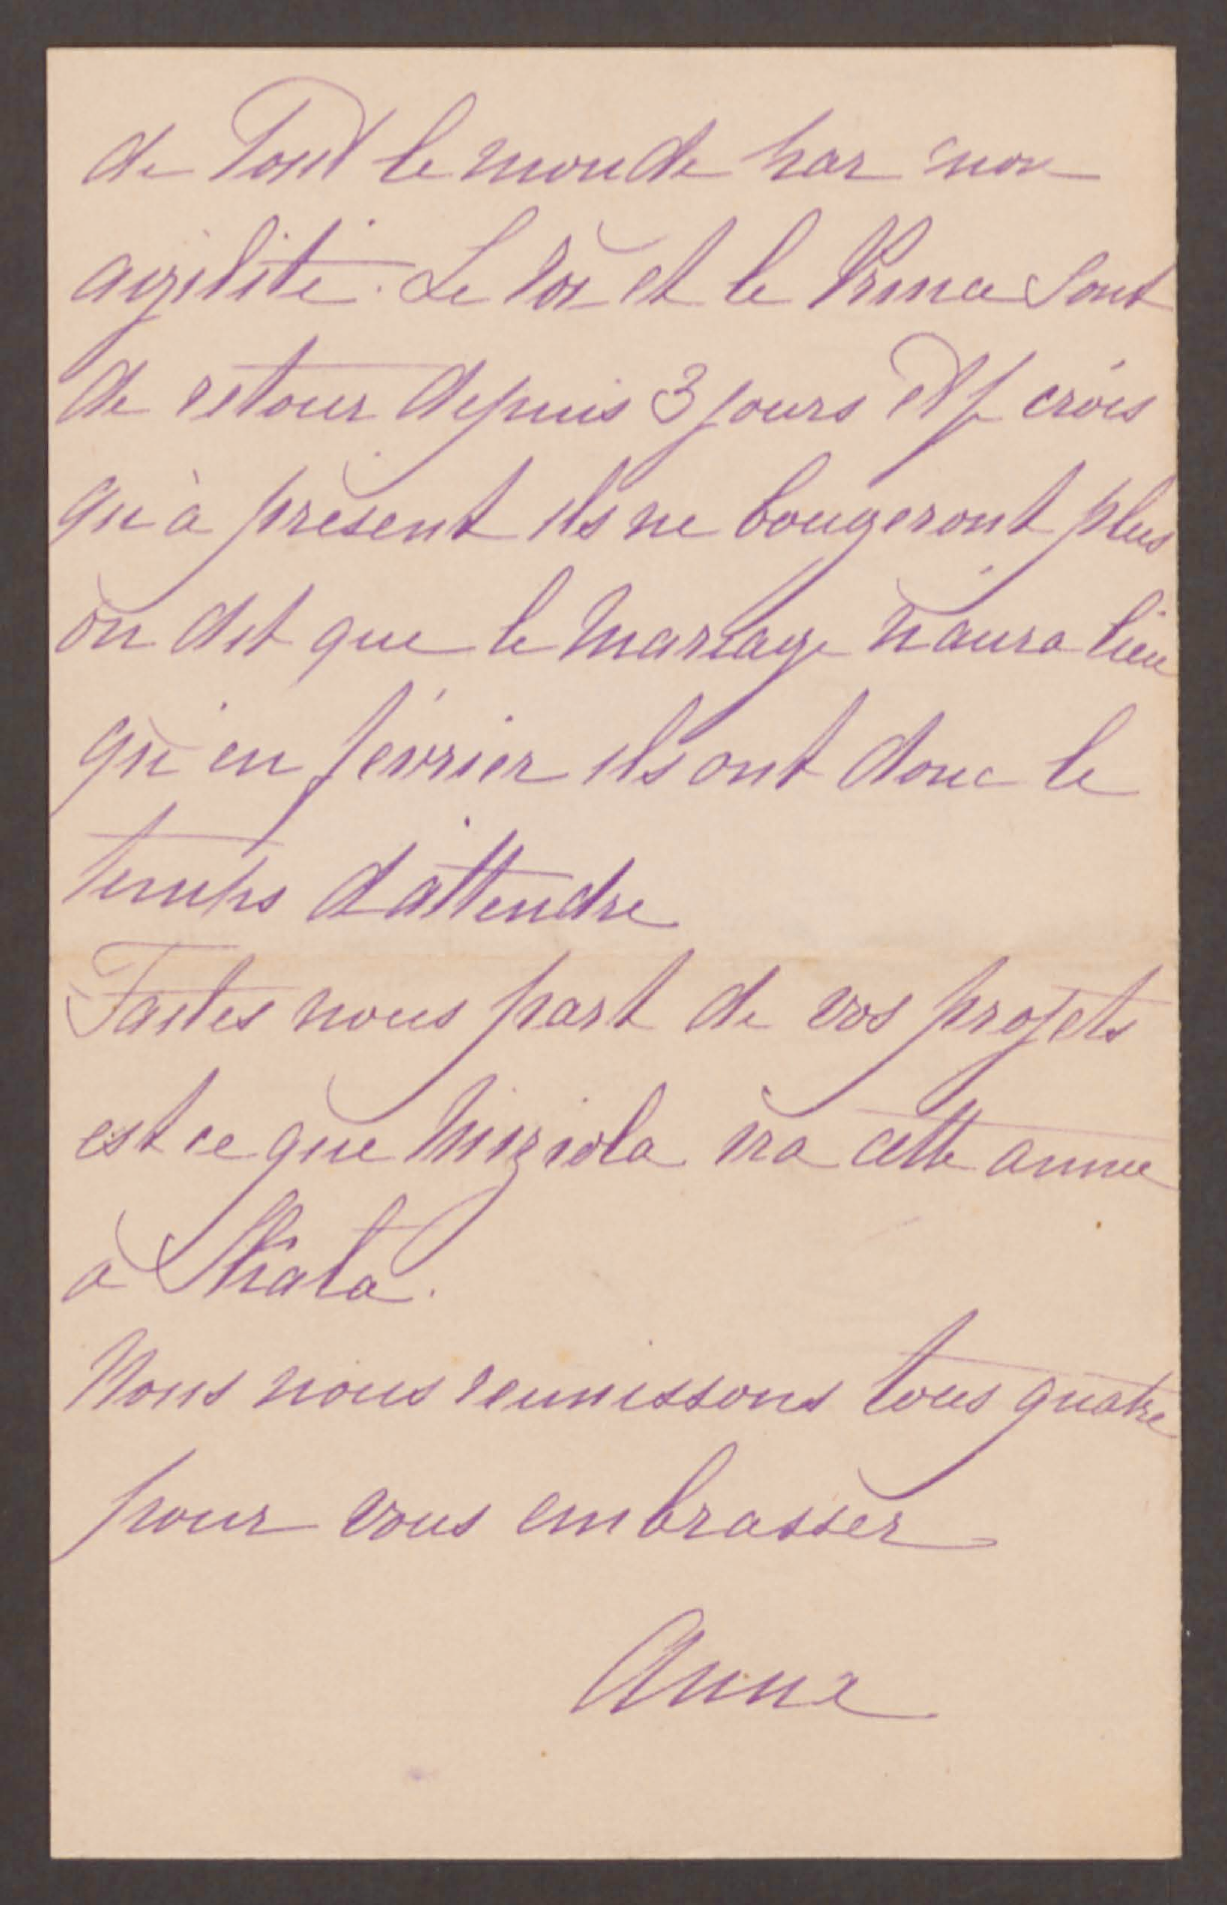 de Tout le monde par mon
agilité. Le roi et le Prince sont
de retour depuis 3 jours et je crois
qu'à présent ils ne bougeront plus
on dit que le mariage n'aura lieu
qu'en février ils ont donc le
temps d'attendre
Faites nous part de vos projets
est ce que Mizida ira cette année
à
Nous nous reunissons tous quatre
pour vous embrasser
Anna